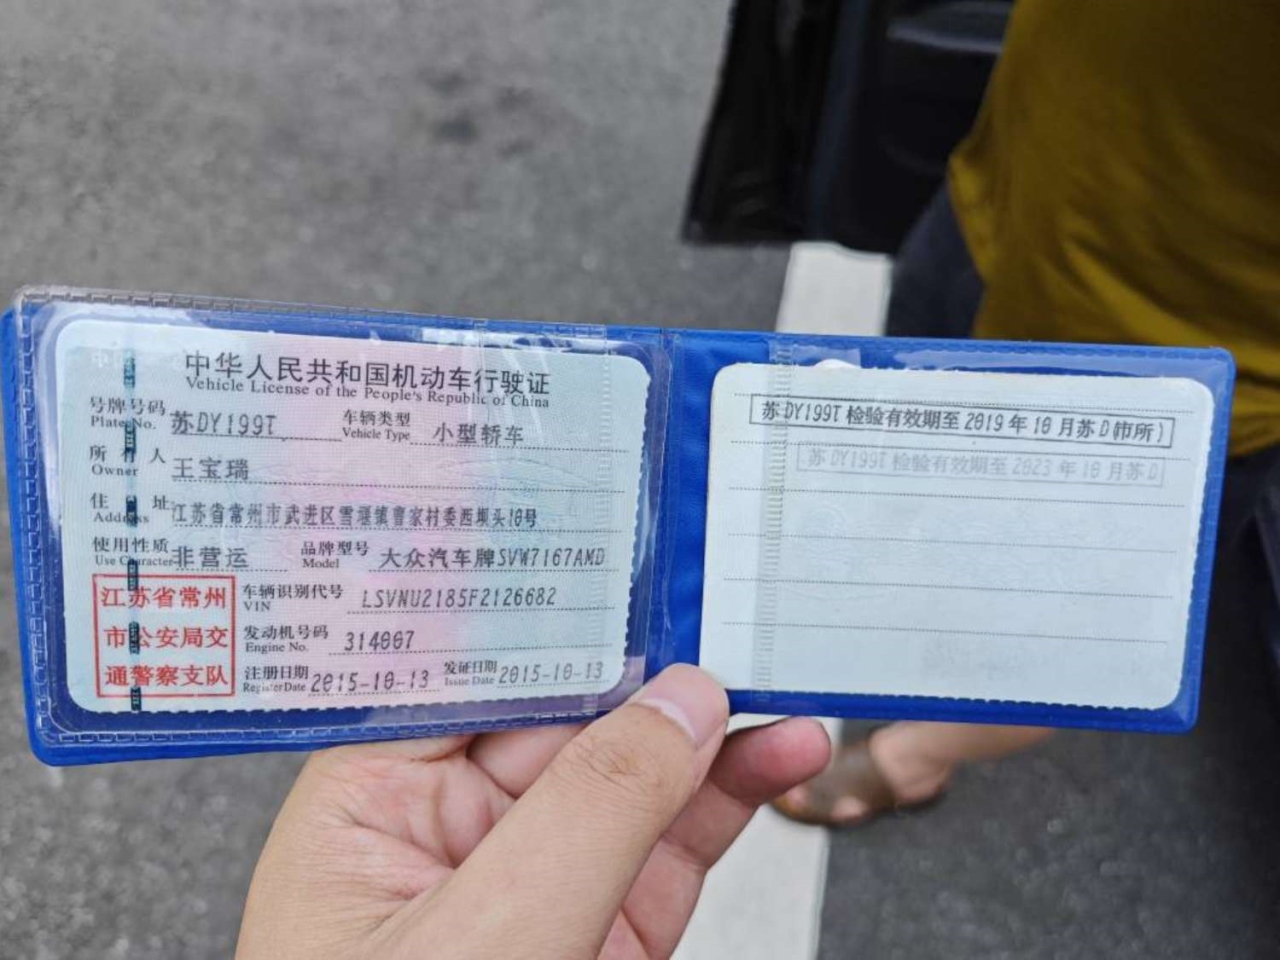 中华人民共和国机动车行驶证
Vehicle License of the People's Republic of China
号牌号码 苏DY199T 车辆类型 小型轿车
Plate No. Vehicle Type
所有人 王宝瑞
Owner
住址 江苏省常州市武进区雪堰镇曹家村委西坝头18号
Address
使用性质 非营运 品牌型号 大众汽车牌SVW7167AMD
Use Character Model
江苏省常州
市公安局交
通警察支队
车辆识别代号 LSVNU2185F2126682
VIN
发动机号码 314007
Engine No.
注册日期 2015-10-13 发证日期 2015-10-13
Register Date Issue Date
苏DY199T 检验有效期至 2019 年 10 月苏D(市所)
苏DY199T 检验有效期至 2023 年 10 月苏D